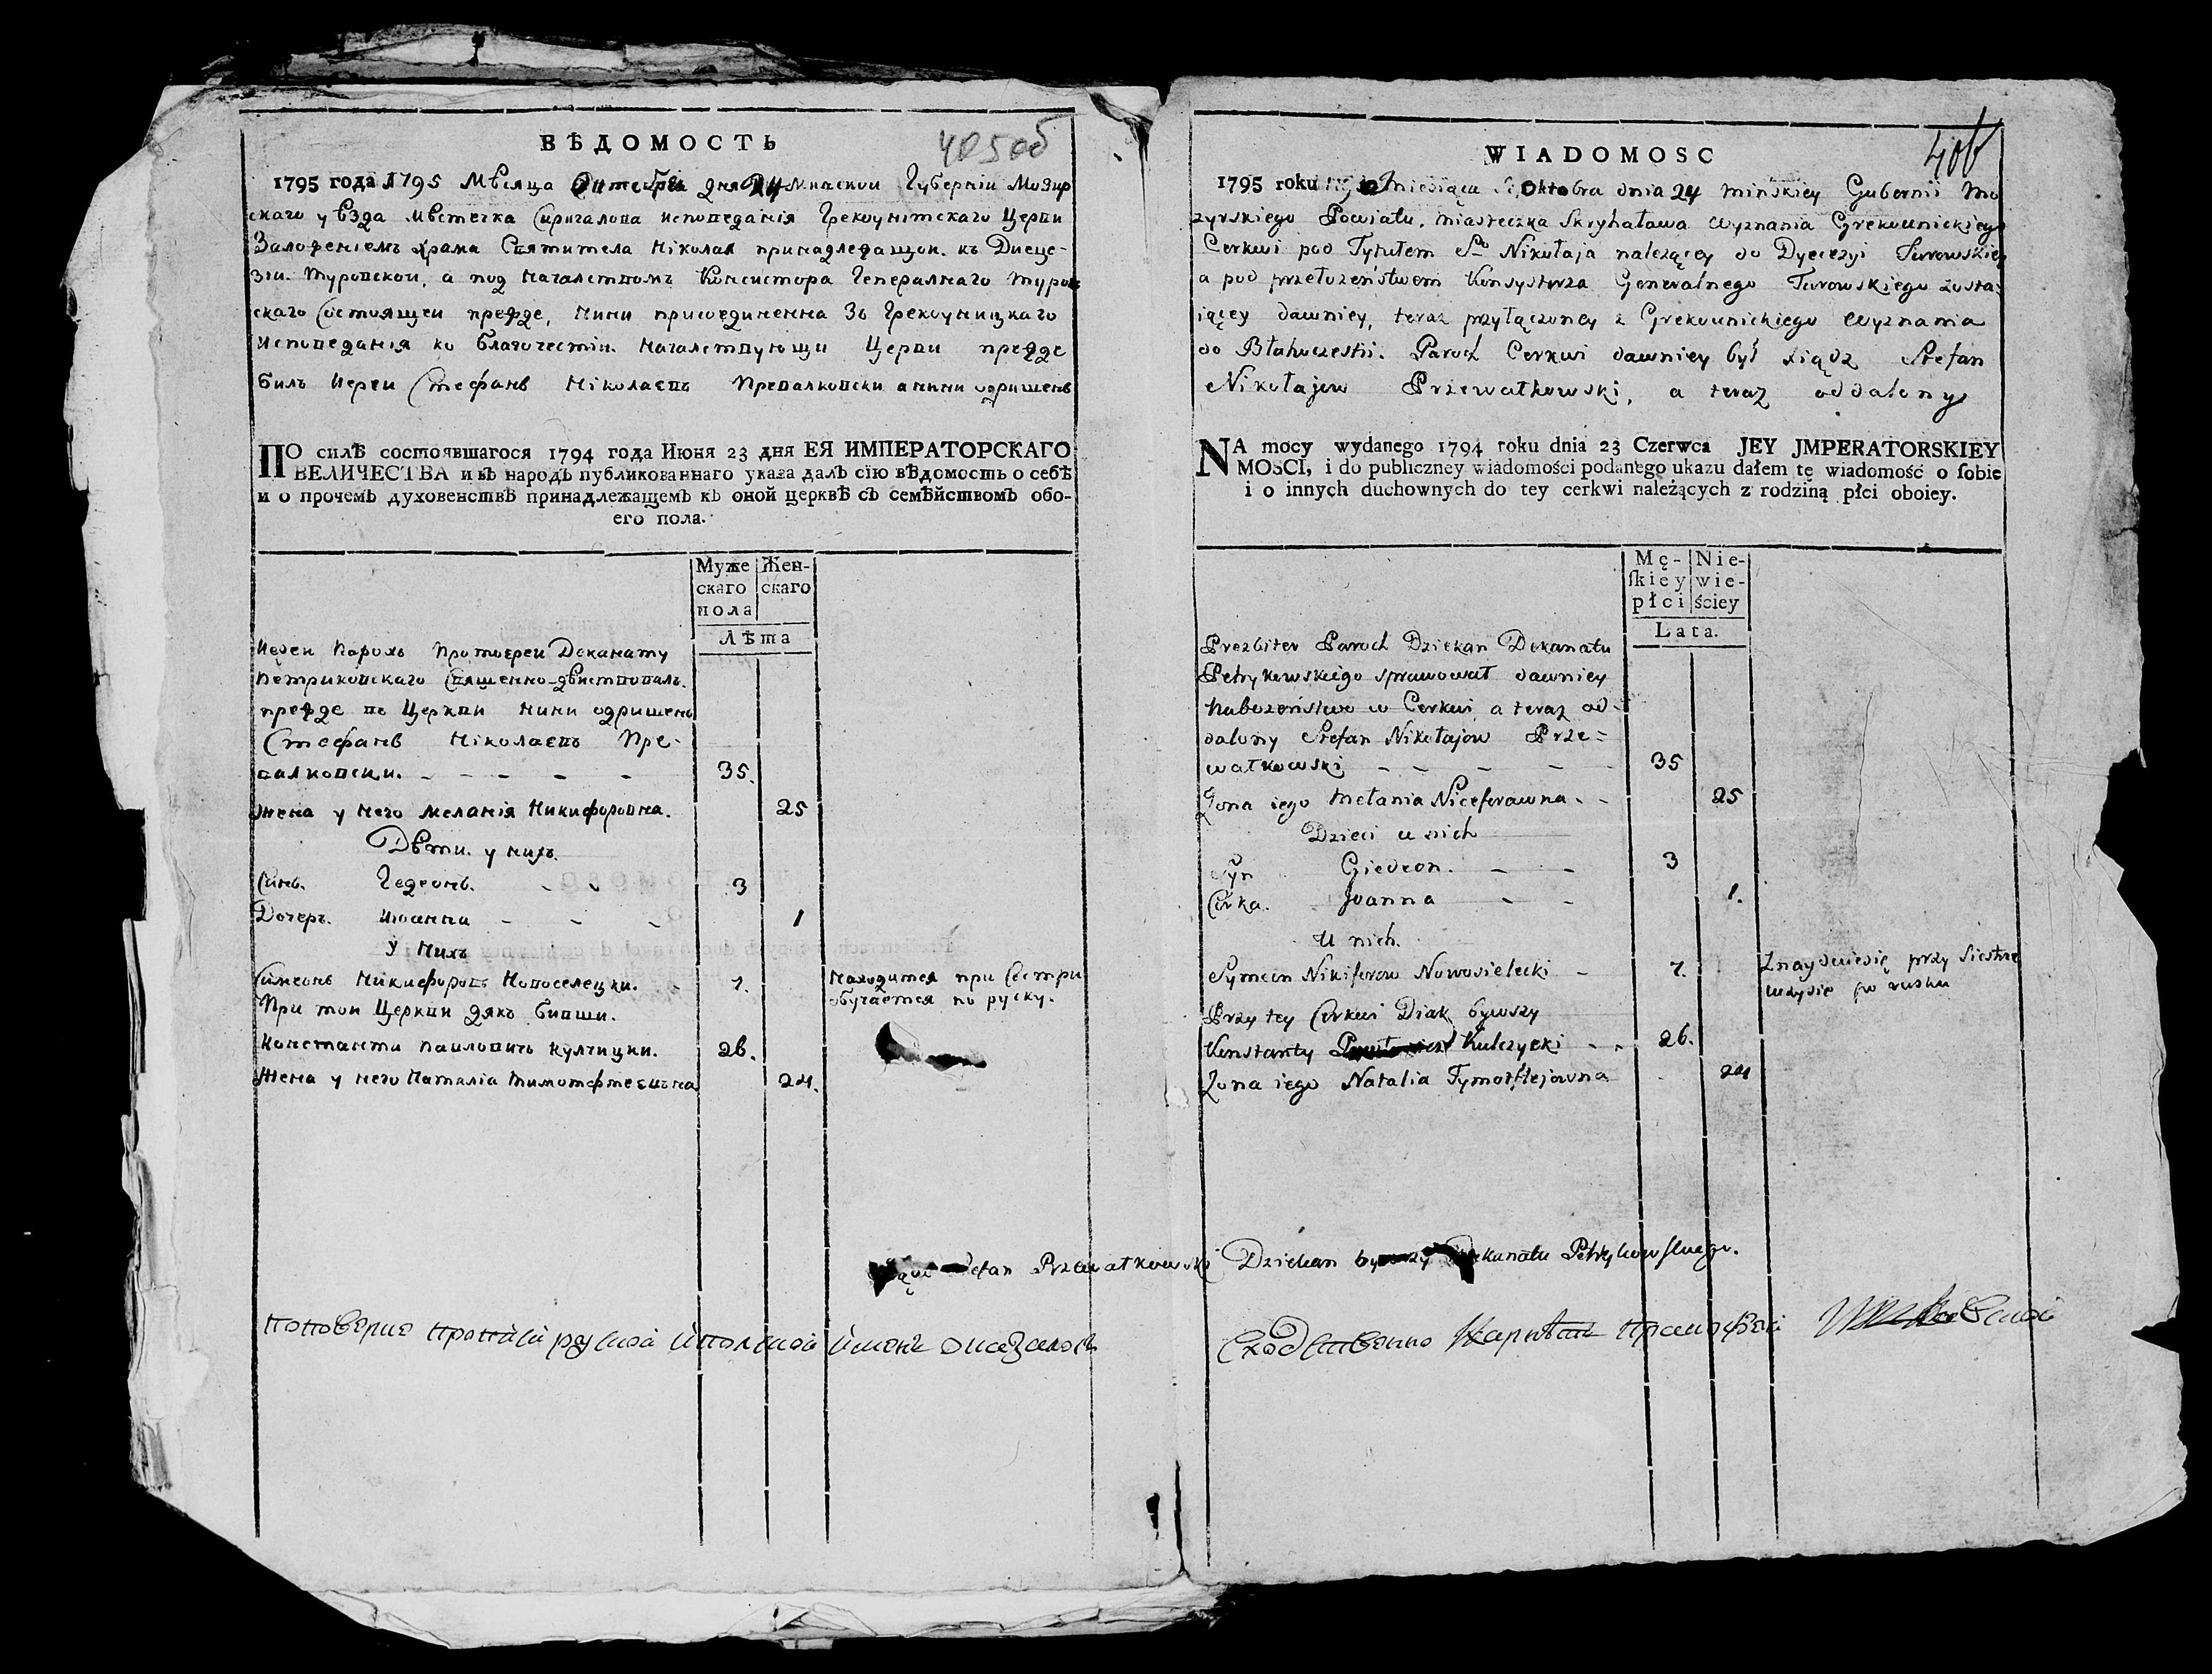 ВѢДОМОСТЬ
405об
1795 года 1795 Мѣсяца Октебра дня 24 Минской Губернїи Мозир
скаго уѣзда Мѣстечка Скригалова исповеданїя Грекоунїтскаго Церкви
Заложенїемъ храма Святителя Нїколая принадлежащой къ Диеце-
зїи Туровской, а под начальствомъ Консистора Генералнаго Туров
скаго Состоящей прежде, нини присоединенна Зъ Грекоуницкаго
исповеданїя ко благочестїи. началствующи Церкви прежде
билъ Иерей Стефанъ Нїколаевъ Превалковски а нини одришенъ
ПО силѣ состоявшагося 1794 года Июня 23 дня ЕЯ ИМПЕРАТОРСКАГО
ВЕЛИЧЕСТВА и въ народъ публикованнаго указа далъ сїю вѣдомость о себѣ
и о прочемъ духовенствѣ принадлежащемъ къ оной церквѣ съ семѣйствомъ обо-
его пола.
Муже Жен-
скаго скаго
пола
Лѣта
Иерей Парохъ Протоерей Деканату
Петриковскаго Священно-дѣиствовалъ
прежде въ Церкви нини одришенъ
Стефанъ Нїколаевъ Пре-
валковски. - - - - - 35.
Жена у него Меланїя Никифоровна. 25
Дѣти у нихъ.
Синъ. Гедеонъ. - - 3
Дочеръ. Иоанна - - - 1
У нихъ
Симеонъ Никифоровъ Новоселецки. - 7. Находится при Сестри
обучается по руску.
При той Церкви дякъ бивши.
Константи Павловичъ Кулчицки. 26.
Жена у него Наталїа Тимотфтеевна 24.
WIADOMOSC
406
1795 roku miesiąca Oktobra dnia 24 Minskiey Gubernii Mo
zyrskiego Powiatu, miasteczka Skryhałowa wyznania Grekounickiego
Cerkwi pod Tytułem So Nikołaja należącey do Dyecezyi Turowskiey
a pod przełożeństwem Konsystorza Generalnego Turowskiego zosta-
iącey dawniey, teraz przyłączoney z Grekounickiego wyznania
do Błahoczestii. Paroch Cerkwi dawniey był xiądz Stefan
Nikołajow Przewałkowski, a teraz oddalony
NA mocy wydanego 1794 roku dnia 23 Czerwca JEY JMPERATORSKIEY
MOSCI, i do publiczney wiadomości podanego ukazu dałem tę wiadomość o sobie
i o innych duchownych do tey cerkwi należących z rodziną płci oboiey.
Mę- Nie-
skiey wie-
płci ściey
Lata.
Prezbiter Paroch Dziekan Dekanatu
Petrykowskiego sprawował dawniey
Nabożeństwo w Cerkwi a teraz od-
dalony Stefan Nikołajow Prze=
wałkowski - - - - - 35
Żona iego Mełania Niceforawna. - 25
Dzieci u nich
Syn Giedeon. - - 3
Corka. Joanna - - 1.
U nich.
Symeon Nikiforow Nowosielecki - 7. Znayduiesię przy Siestrze
uczysie po rusku
Przy tey Cerkwi Diak bywszy
Konstanty Kulczycki - - 26.
Żona iego Natalia Tymotftejowna 24
Przewałkowski Dziekan Dekanatu Petrykowskiego.
поповерке противъ руской и полской
Сходственно